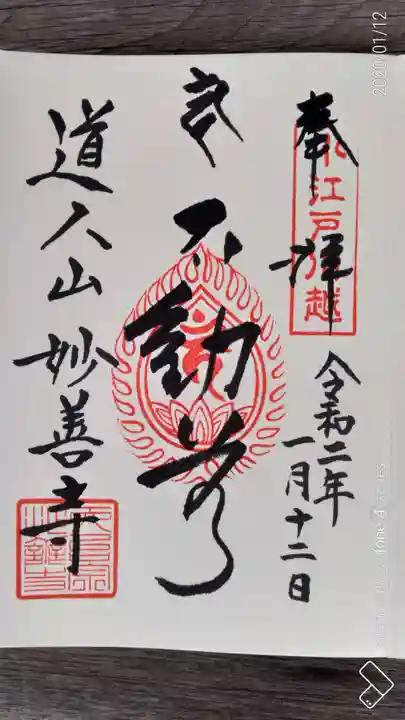 奉拝
小江戸川越
令和二年
一月十二日
不動尊
道人山妙善寺
2020/01/12